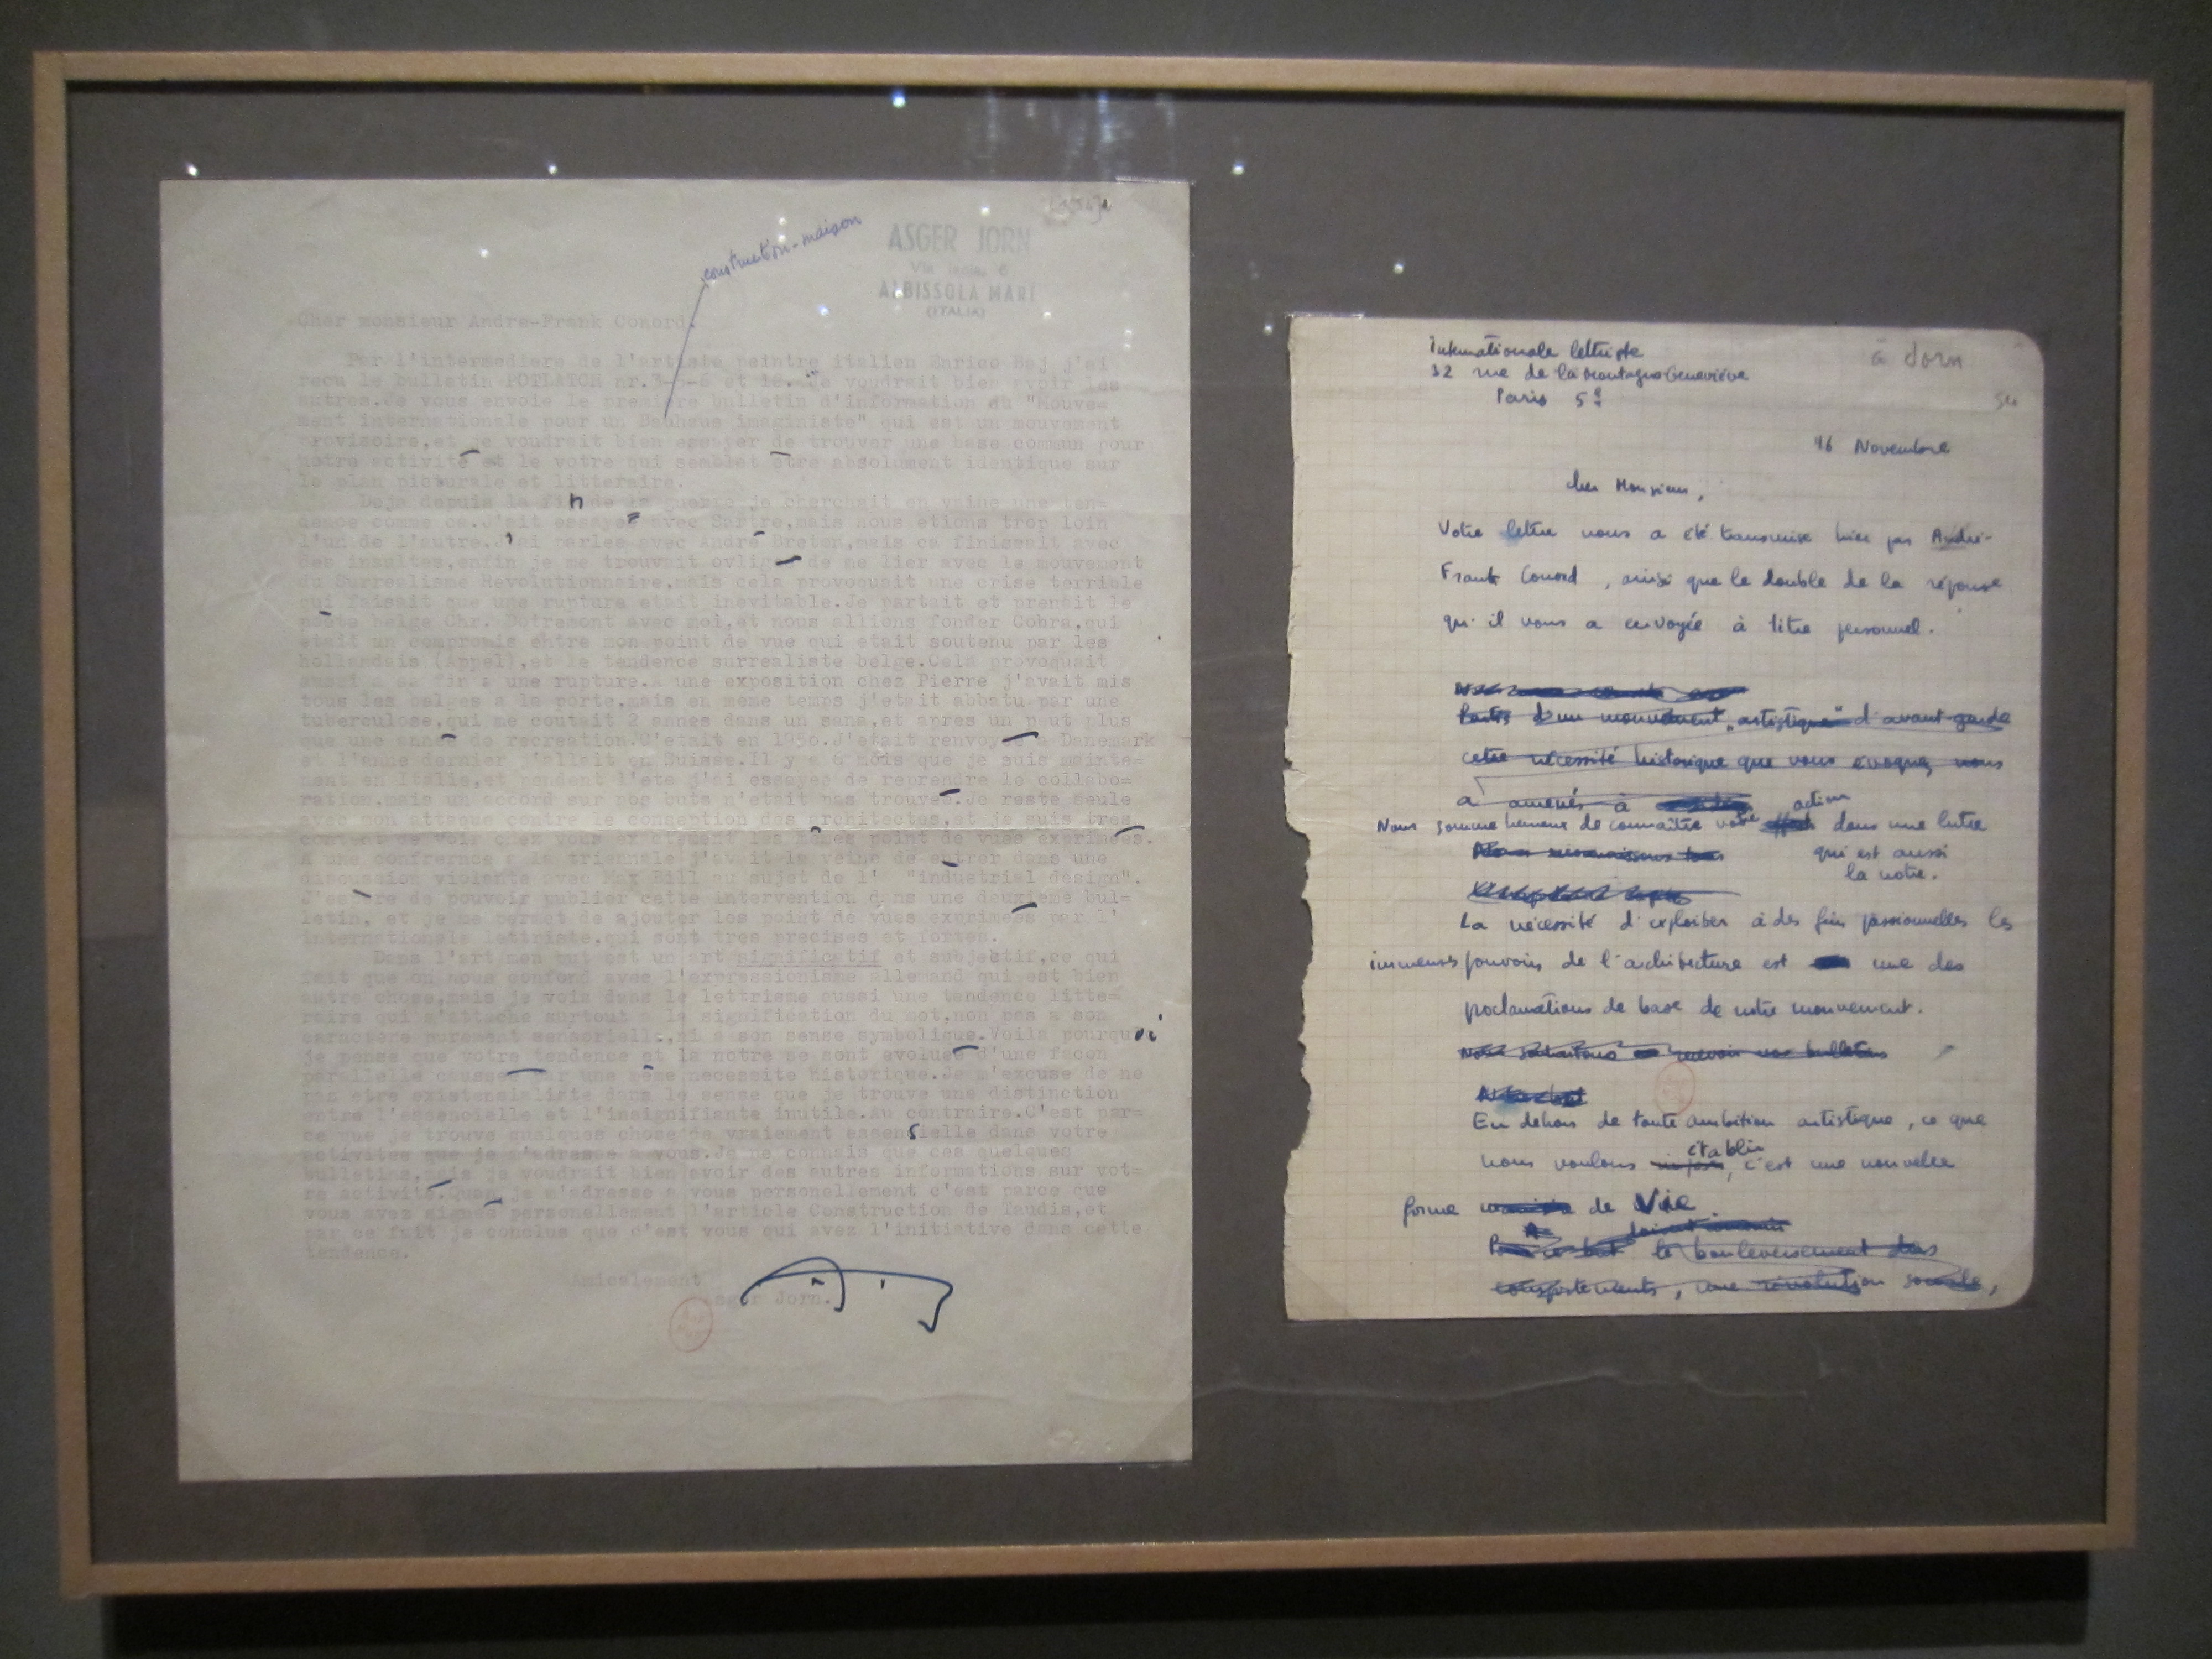 construction-maison
ASGER JORN
ALBISSOLA MARE
(ITALIA)
Cher monsieur Andre-Frank Conord.
Par l'intermediere de l'artiste peintre italien Enrico Baj j'ai
recu le bulletin POTLATCH nr.3- et Je voudrait bien avoir les
autres.Je vous envoie le premiere bulletin d'information du "Mouve=
ment internationale pour un Bauhaus imaginiste" qui est un mouvement
provisoire,et je voudrait bien essayer de trouver une base commun pour
notre activité et le votre qui semblet être absolument identique sur
le plan picturale et litteraire.
Deja depuis la fin de la guerre je cherchait en vaine une ten=
dence comme ca.J'ait essayée avec Sartre,mais nous etions trop loin
l'un de l'autre.J'ai parlee avec André Breton,mais ca finissait avec
des insultes,enfin je me trouvait de me lier avec le mouvement
du Surrealisme Revolutionnaire,mais cela provoquait une crise terrible
qui faisait que une rupture etait inevitable.Je partait et prenait le
poète belge Chr. Dotremont avec moi,et nous allions fonder Cobra,qui
etait un compromis entre mon point de vue qui etait soutenu par les
hollandais (Appel),et le tendence surrealiste belge.Cela provoquait
aussi a sa fin a une rupture.A une exposition chez Pierre j'avait mis
tous les belges a la porte,mais en même temps j'etait abbatu par une
tuberculose,qui me coutait 2 annes dans un sana,et apres un peut plus
que une année de recreation.C'etait en 1950.J'etait renvoyée a Danemark
et l'anne dernier j'allait en Suisse.Il y a 6 mois que je suis mainte=
nent en Italie,et pendent l'ete j'ai essayee de reprendre le collabo=
ration,mais un accord sur nos buts n'etait pas trouvée.Je reste seule
avec mon attaque contre le conception des architectes,et je suis tres
content de voir chez vous exactement les mêmes point de vues exprimées.
A une confrernce a la triennale j'avait la veine de entrer dans une
discussion violente avec Max Bill au sujet de l' "industrial design".
J'espère de pouvoir publier cette intervention dans une deuxième bul=
letin, et je me permet de ajouter les point de vues exprimées par l'
internationale lettriste,qui sont tres precises et formes.
Dans l'art mon but est un art significatif et subjektif,ce qui
fait que on nous confond avec l'expressionisme allemand qui est bien
autre chose,mais je vois dans le lettrisme aussi une tendence litte=
raire qui s'attache surtout a la signification du mot,non pas a son
caractere purement sensorielle,ni a son sense symbolique.Voila pourquoi
je pense que votre tendence et la notre se sont evoluée d'une facon
parallelle causée par une même necessite historique.Je m'excuse de ne
pas etre existensialiste dans le sense que je trouve une distinction
entre l'essencielle et l'insignifiante inutile.Au contraire.C'est par=
ce que je trouve quelques chose de vraiement essensielle dans votre
activitee que je m'adresse a vous.Je ne connais que ces quelques
bulletins,mais je voudrait bien avoir des autres informations sur vot=
re activité.Quand je m'adresse a vous personellement c'est parce que
vous avez signée personellement l'article Construction de Taudis,et
par ce fait je conclus que c'est vous qui avez l'initiative dans cette
tendence.
Amicalement
Asger Jorn.
Internationale lettriste
à Jorn
32 rue de la Montagne-Geneviève
Paris 5e
54
16 Novembre
cher Monsieur,
Votre lettre nous a été transmise hier par André-
Frank Conord, ainsi que le double de la réponse
qu'il vous a envoyée à titre personnel.
Partis d'un mouvement "artistique" d'avant-garde
cette nécessité historique que vous évoquez nous
a amenés à
action
Nous sommes heureux de connaître votre dans une lutte
qui est aussi
la notre.
La nécessité d'exploiter à des fins passionnelles les
immenses pouvoirs de l'architecture est une des
proclamations de base de notre mouvement.
Nous souhaitons recevoir vos bulletins
En dehors de toute ambition artistique, ce que
établir
nous voulons , c'est une nouvelle
forme de Vie.
le bouleversement des
comportements, une révolution sociale,